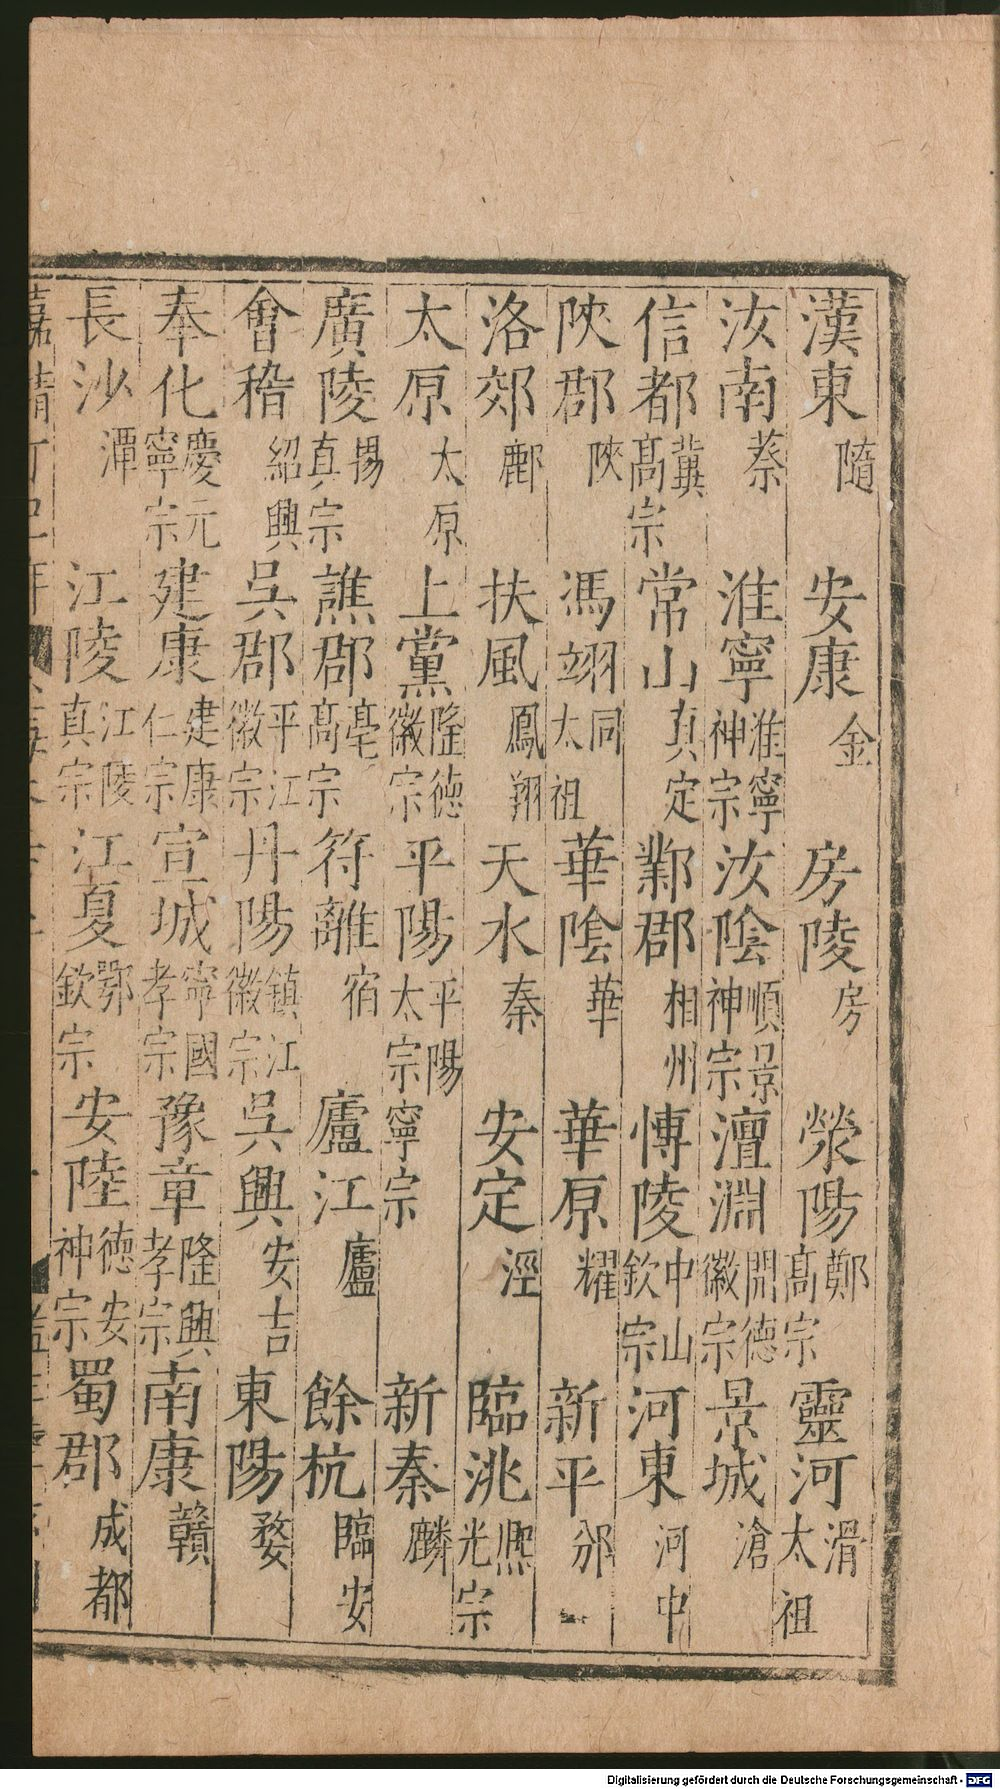 漢東 隨 安康 金 房陵 房 滎陽 鄭高宗 靈河 滑太祖
汝南 蔡 淮寧 淮寧神宗 汝陰 順昌神宗 澶淵 開德徽宗 景城 滄
信都 冀高宗 常山 真定 鄴郡 相州 博陵 中山欽宗 河東 河中
陜郡 陜 馮翊 同太祖 華陰 華 華原 耀 新平 邠
洛郊 鄜 扶風 鳳翔 天水 秦 安定 涇 臨洮 熙光宗
太原 太原 上黨 隆德徽宗 平陽 平陽太宗寧宗 新秦 麟
廣陵 揚真宗 譙郡 亳高宗 符離 宿 廬江 廬 餘杭 臨安
會稽 紹興 吳郡 平江徽宗 丹陽 鎮江徽宗 吳興 安吉 東陽 婺
奉化 慶元寧宗 建康 建康仁宗 宣城 寧國孝宗 豫章 隆興孝宗 南康 贛
長沙 潭 江陵 江陵真宗 江夏 鄂欽宗 安陸 德安神宗 蜀郡 成都
Digitalisierung gefördert durch die Deutsche Forschungsgemeinschaft - DFG